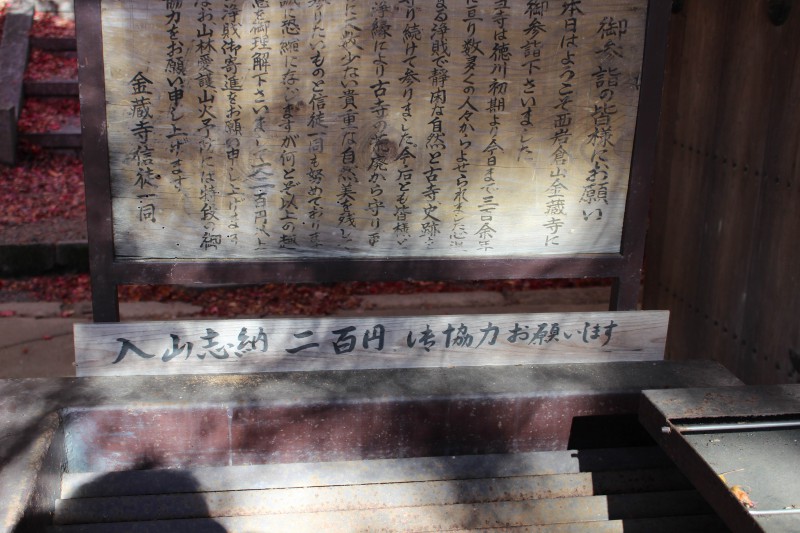 御参詣の皆様にお願い
本日はようこそ西岩倉山金蔵寺に
御参詣下さいました
当寺は徳川初期より今日まで三百余年
に亘り数多くの人々からよせられました
る浄財で静閑な自然と古寺史跡
守り続けて参りました今后とも皆様
浄縁により古寺の荒廃から守り
に数少ない貴重な自然美を残し
りたいものと信徒一同も努めており
恐縮に存じますが何とぞ以上の趣
を御理解下さいまして入山二百円以上
浄財御寄進をお願い申し上げます
なお山林愛護山火予防には特段の御
協力をお願い申し上げます
金蔵寺信徒一同
入山志納 二百円 御協力お願いします